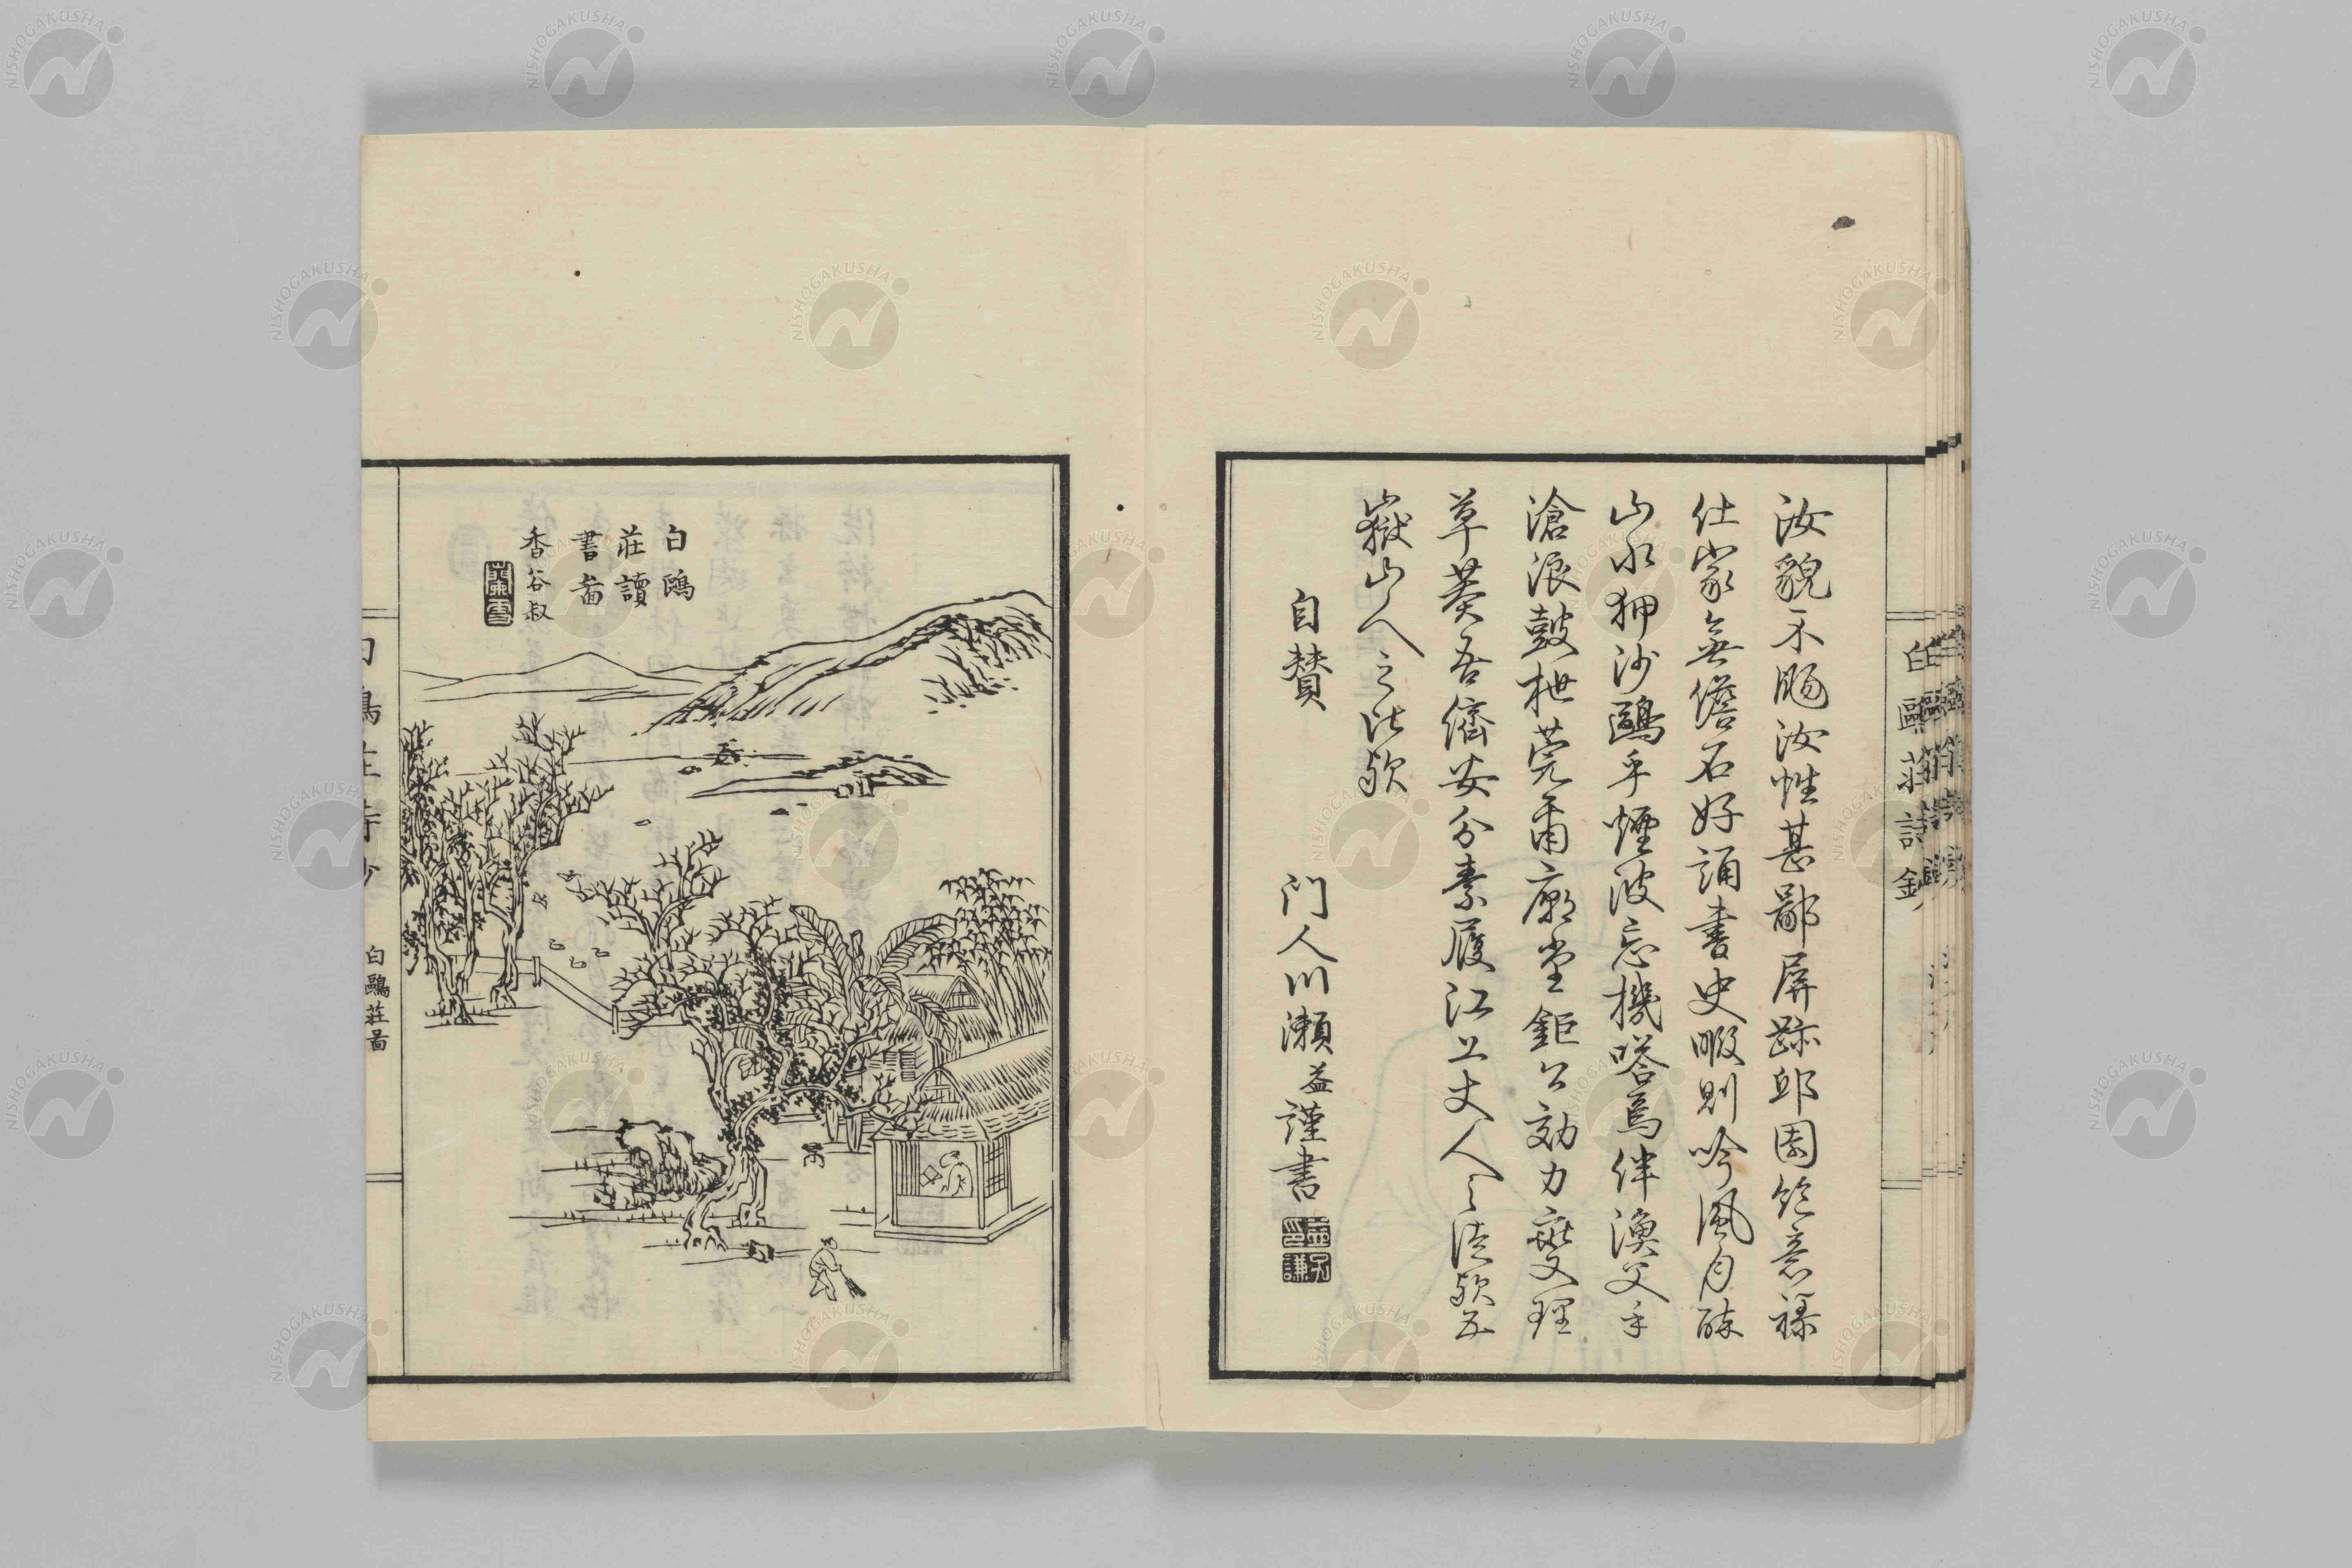 汝貌不颺汝性甚鄙屏跡邱園飽意禄
仕家無儋石好誦書史暇則吟風月酔
山水狎沙鷗乎煙波忘機嗒焉伴漁父乎
滄浪鼓枻莞爾廟堂鉅公効力燮理
草莽吾儕安分素履江上丈人之徒歟五
嶽山人之比歟
自賛
门人川瀬益謹書
白鷗莊詩鈔
白鷗
莊讀
書啚
香谷叔
蘭雪
白鷗莊詩鈔
白鷗莊啚
NISHOGAKUSHA